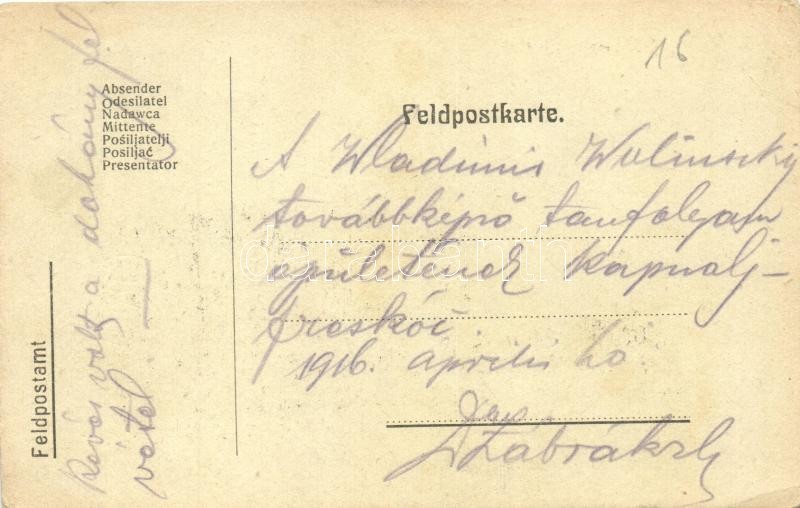 16
Absender
Odesilatel
Nadawca
Mittente
Pošiljatelji
Posiljač
Presentator
Feldpostkarte.
A Wladimir Wolinszky
továbbképző tanfolyam
épületének kapualj-
freskói.
1916. április hó
Feldpostamt
Kevés volt a dohány fel
vétel
darabanth